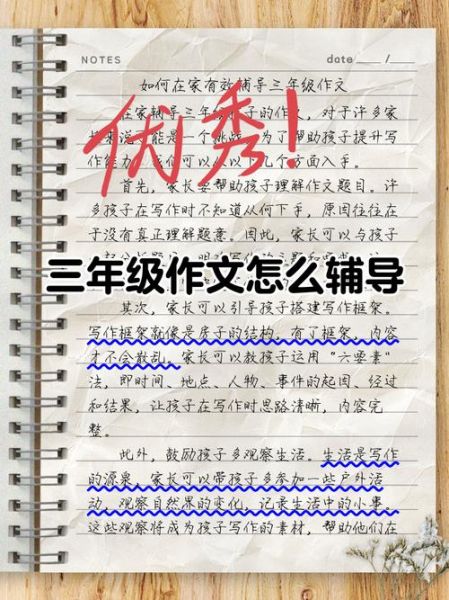 NOTES
date ____ /____
如何在家有效辅导三年级作文
优秀！
在家辅导三年级孩子的作文，对于许多家
来说 能是一个挑战。为了帮助孩子提升写
作能力，我们可以从以下几个方面入手。
首先，家长要帮助孩子理解作文题目。许
多孩子在写作时不知道从何下手，原因往往在
于没有真正理解题意。因此，家长可以与孩子
三年级作文怎么辅导
其次，家长可以引导孩子搭建写作框架。
写作框架就像是房子的结构，有了框架，内容
才不会散乱。家长可以教孩子运用“六要素”
法，即时间、地点、人物、事件的起因、经过
和结果，让孩子在写作时思路清晰，内容完
整。
此外，鼓励孩子多观察生活。生活是写作
的源泉，家长可以带孩子多参加一些户外活
动，观察自然界的变化，记录生活中的小事。
这些观察将成为孩子写作的素材，帮助他们在